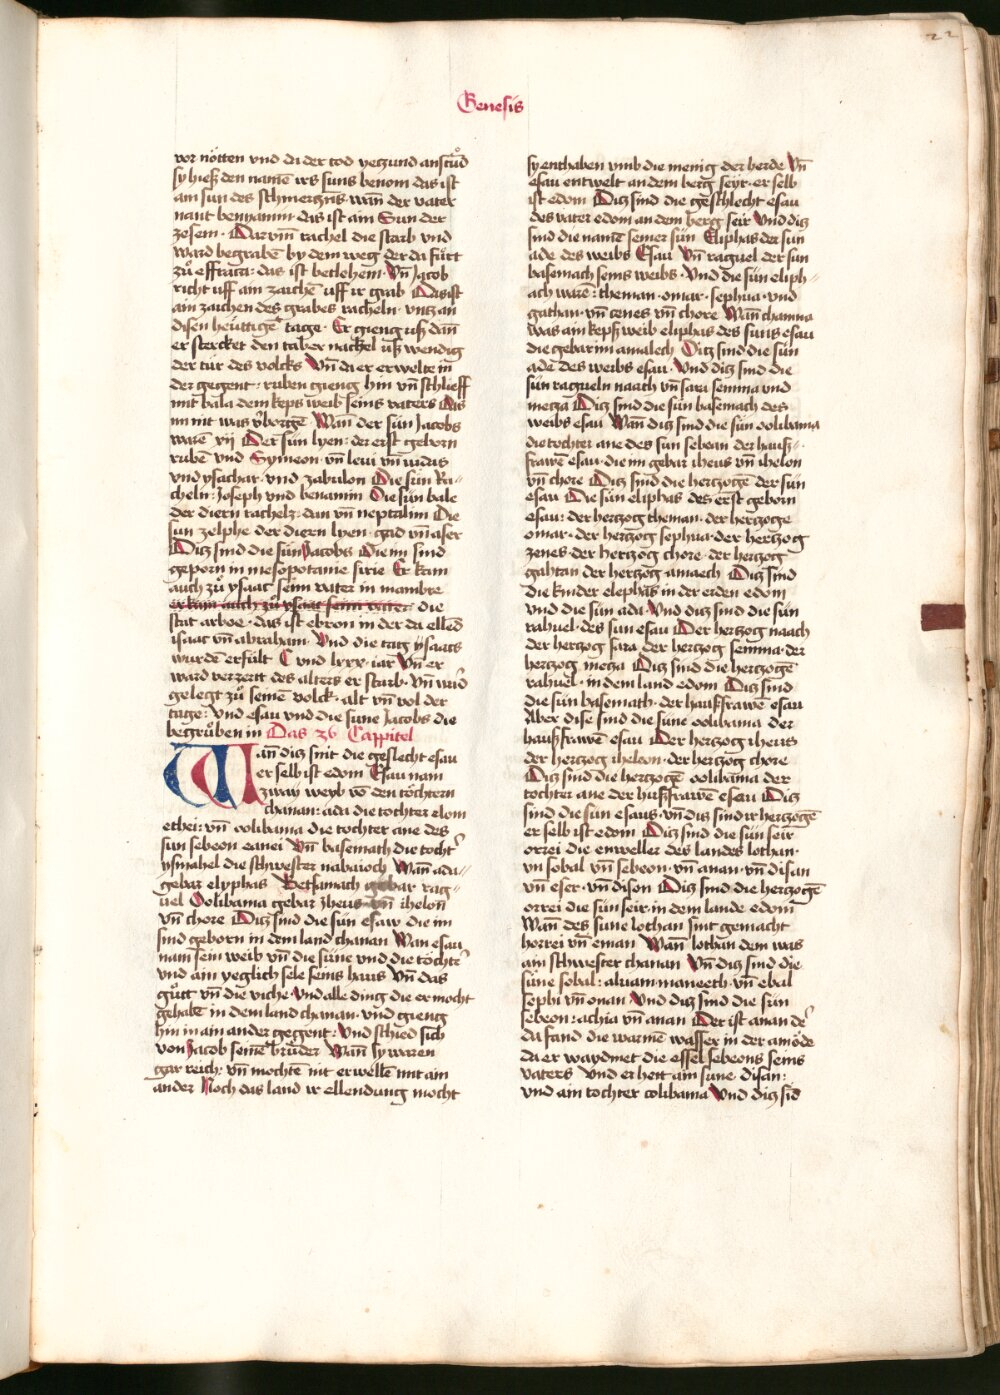 22
Genesis
vor nötten vnd da der tod yeczund anstůd
sy hieß den namē irs suns benom das ist
am sun des schmerczns · wān der vater
nant benyamim das ist am Sun der
zesem · Darvm̄ rachel die starb vnd
ward begrabē by dem weg der da fürt
zů effrata · das ist betlehem · Vn̄ Jacob
richt uff am zaichē uff ir grab Das ist
ain zaichen des grabes racheln · vntz an
disen heüttigē tage · Er gieng uß dan̄
er stercket den taber nackel uß wendig
der tür des volcks Vn̄ da er erwelte in
der gegent : ruben gieng hin vn̄ schlieff
mit bala dem keps weib seins vaters Das
im nit was v̄borgē Wan der sün Jacobs
warē xij Der sun lyen : der erst geborn
rubē vnd Symeon · vn̄ leui vn̄ iudas
vnd ysachar · vnd zabulon Die sün Ra-
cheln : Joseph vnd benamin Die sün bale
der diern rachelz · dan vn̄ neptalim Die
sun zelphe der diern lyen · gad vn̄ aser
Ditz sind die sün Jacobs Die im sind
geporn in mesopotamie sirie Er kam
auch zů ysaac seim vater in mambre
er kam auch zů ysaac seim vater die
stat arboe · das ist ebron in der da ellēd
isaac vn̄ abraham · Vnd die tag ysaacs
wurdē erfült C vnd lxxx · iar Vn̄ er
ward verzertt des alters er starb · Vn̄ ward
gelegt zů seinē volck · alt vn̄ vol der
tage : vnd esau vnd die sune Jacobs die
begrůben in Das 36 Cappitel
Wan̄ ditz sint die geslecht esau
er selb ist edom Esau nam
zway weyb vō den töchtern
chanan : ada die tochter elom
ethei : vn̄ oolibama die tochter ane des
sun sebeon eanei Vn̄ basemath die tocht̾
ysmahel die schwester nabaioch Wan̄ ada
gebar elyphas Betsamach gebar rag-
uel Oolibama gebar zheus vn̄ ihelon
vn̄ chore Ditz sind die sün esaw die im
sind geborn in dem land chanan Wan esau
nam sein weib vn̄ die süne vnd die töcht̾
vnd ain yeglich sele seins haus Vn̄ das
gůtt vn̄ die viche · Vnd alle ding die er mocht
gehabē in dem land chanan · vnd gieng
hin in ain ander gegent : Vnd schied sich
von Jacob seinē brůder Wan̄ sy waren
gar reich : vn̄ mochtē nit erwellē mit ain
ander Noch das land ir ellendung mocht
sy enthaben vmb die menig der herde Vn̄
esau entwelt an dem berg seyr · er selb
ist edom Ditz sind die geschlecht esau
des vater edom an dem berg seir Vnd ditz
sind die namē seiner sün Eliphas der sun
ade des weibs Esau Vn̄ raguel der sun
basemach seins weibs · Vnd die sün eliph-
ach warē : theman · omar · sephua · vnd
gathan · vn̄ cenes vn̄ chore Wan̄ chamna
was ain kepß weib eliphas des suns esau
die gebar im amalech Ditz sind die sün
ade des weibs esau · Vnd ditz sind die
sün ragueln naath vn̄ sara semma vnd
meza Ditz sind die sün basemach des
weibs esau Wan̄ ditz sind die sün oolibama
die tochter ane des sun sebean der hauß-
frawē esau · die im gebar iheus vn̄ ihelon
vn̄ chore Ditz sind die hertzogen der sün
esau Die sün eliphas des erst geborn
esau : der hertzog theman · der hertzoge
omar · der hertzog sephua · der hertzog
zenes · der hertzog chore · der hertzog
gahtan der hertzog amaech Ditz sind
die kinder elephas in der erden edom
vnd die sün ada · Vnd ditz sind die sün
rahuel · des sun esau Der hertzog naach
der hertzog sara der hertzog semma · der
hertzog meza Ditz sind die hertzogē
rahuel · in dem land edom Ditz sind
die sün basemath · der haußfrawē esau
Aber dise sind die sune oolibama der
haußfrawē esau Der hertzog iheus
der hertzog iheleon · der hertzog chore
Ditz sind die hertzogē oolibama der
tochter ane der hußfrawē esau Ditz
sind die sün esaus · vn̄ ditz sind ir hertzogē
er selb ist edom Ditz sind die sün seir
orrei die enweller des landes lothan ·
vn sobal vn̄ sebeon · vn̄ anan · vn̄ disan
vn̄ eser · vn̄ dison Ditz sind die hertzogē
orrei die sün seir · in dem lande edom
Wan̄ des sune lothan sint gemacht
horrei vn̄ eman Wan̄ lothan dem was
ain schwester chanan Vn̄ ditz sind die
süne sobal : aluam · maneeth · vn̄ ebal
sephi vn̄ onan Vnd ditz sind die sün
sebeon : achia vn̄ anan Der ist anan d̾
da fand die warmē wasser in der amöde
da er waydmet die essel sebeons seins
vaters Vnd er hett ain sune · disan :
vnd ain tochter oolibama Vnd ditz sid